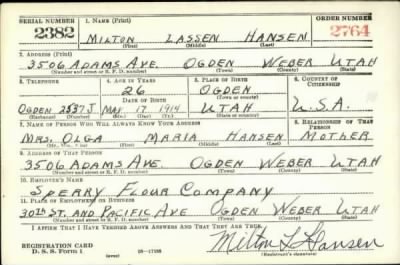 SERIAL NUMBER 1. NAME (Print) ORDER NUMBER
2382 MILTON LASSEN HANSEN 2764
(First) (Middle) (Last)
2. ADDRESS (Print)
3506 ADAMS AVE. OGDEN WEBER UTAH
(Number and street or R. F. D. number) (Town) (County) (State)
3. TELEPHONE 4. AGE IN YEARS 5. PLACE OF BIRTH 6. COUNTRY OF CITIZENSHIP
26 OGDEN
DATE OF BIRTH (Town or county)
OGDEN 2537 J MAY 17 1914 UTAH U.S.A.
(Exchange) (Number) (Mo.) (Day) (Yr.) (State or country)
7. NAME OF PERSON WHO WILL ALWAYS KNOW YOUR ADDRESS 8. RELATIONSHIP OF THAT PERSON
MRS. OLGA MARIA HANSEN MOTHER
(Mr., Mrs., Miss) (First) (Middle) (Last)
9. ADDRESS OF THAT PERSON
3506 ADAMS AVE. OGDEN WEBER UTAH
(Number and street or R. F. D. number) (Town) (County) (State)
10. EMPLOYER'S NAME
SPERRY FLOUR COMPANY
11. PLACE OF EMPLOYMENT OR BUSINESS
30TH ST. AND PACIFIC AVE OGDEN WEBER UTAH
(Number and street or R. F. D. number) (Town) (County) (State)
I AFFIRM THAT I HAVE VERIFIED ABOVE ANSWERS AND THAT THEY ARE TRUE.
REGISTRATION CARD
D. S. S. Form 1 (over) Milton L Hansen
(Registrant's signature)